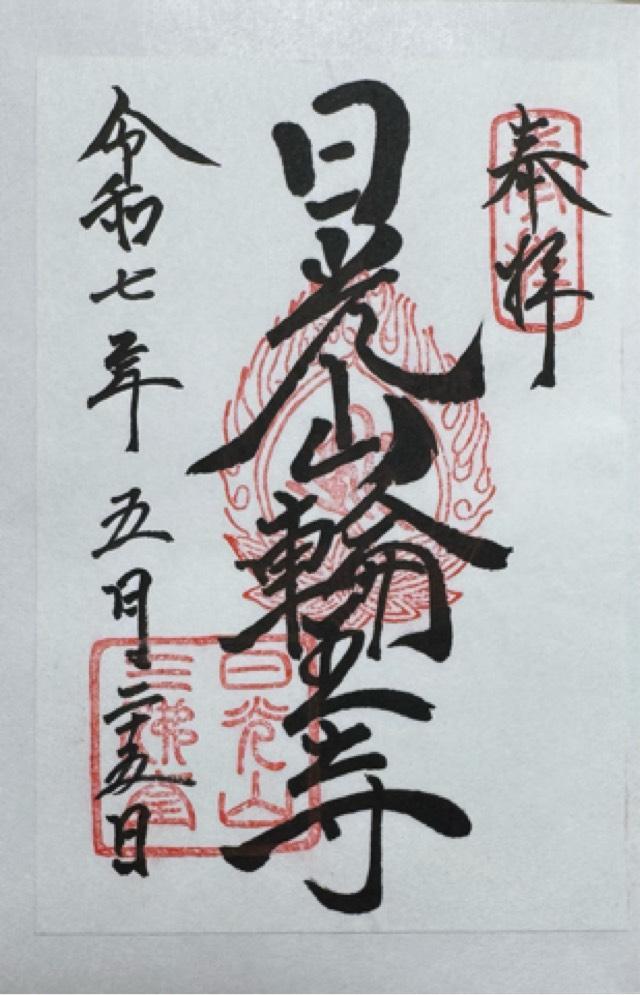 奉拝
日光山輪王寺
令和七年五月二十五日
日光山
三佛堂